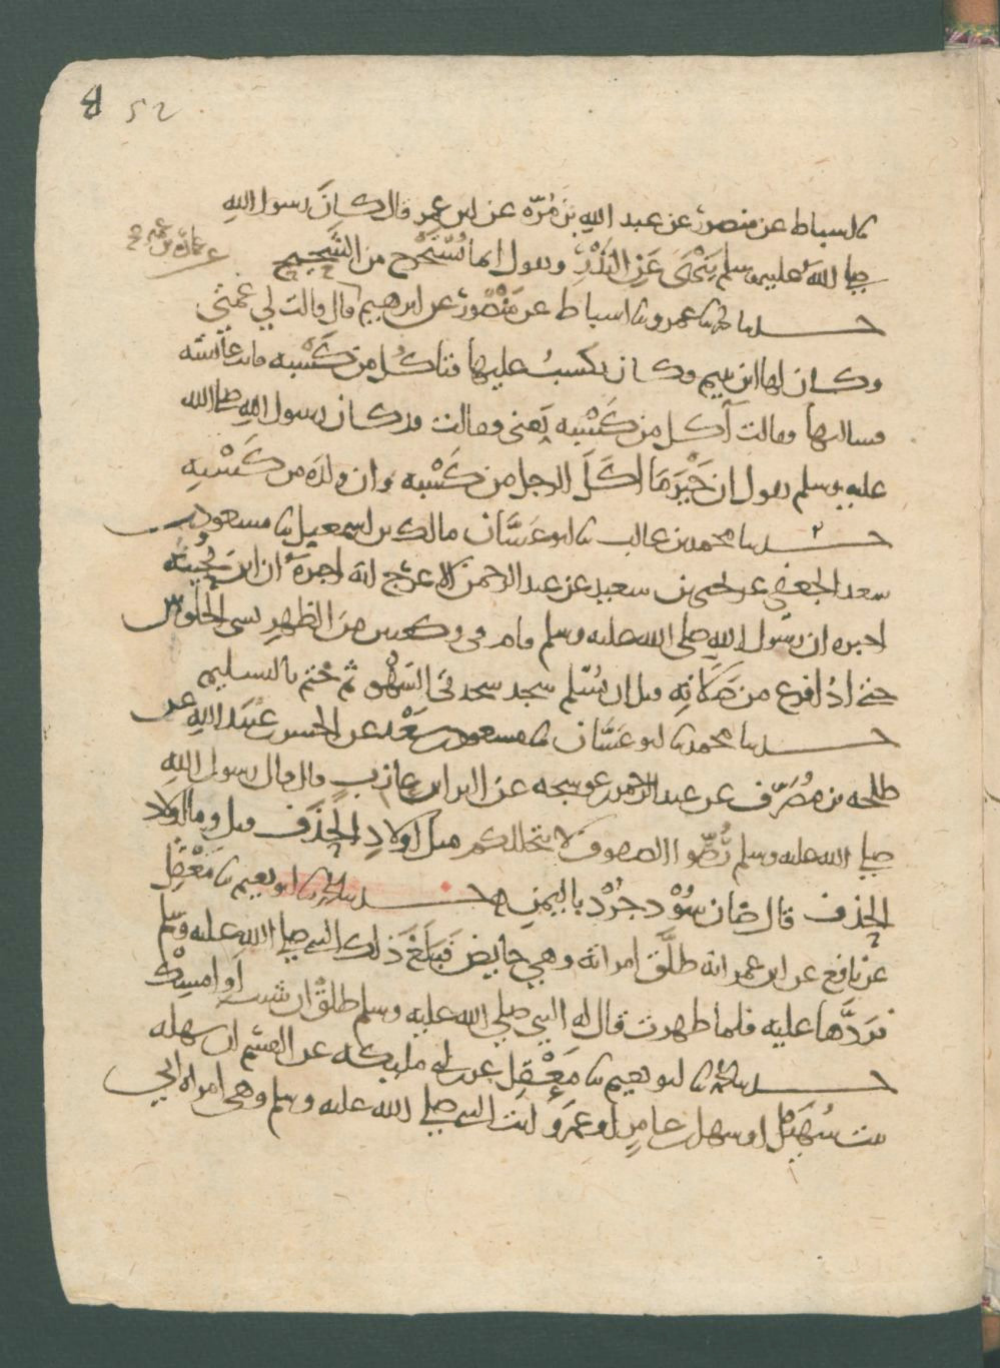 52
نا اسباط عن منصور عن عبد الله بن مُرّة عن ابن عمر قال كان رسول الله
صلى الله عليه وسلم ينهى عن النذر ويقول انما يُستخرج من الشحيح
حدثنا نا عمرو نا اسباط عن منصور عن ابرهيم قال قالت لي عمتي
عمارة بن عمير
وكان لها ابن يتيم وكان يكسب عليها فتاكل من كَسْبه فاتت عائشة
فسالتها وقالت آكل من كَسْبه يعني فقالت قد كان رسول الله صلى الله
عليه وسلم يقول ان خَيْرَ مَا اكَلَ الرجل من كَسْبه وان ولده من كَسْبِه
حدثنا محمد بن غالب نا ابو غسَّان مالك بن اسمعيل نا مسعود بن
سعد الجعفي عن يحيى بن سعيد عن عبد الرحمن الاعرج انه اخبره ان ابن بُحينة
اخبره ان رسول الله صلى الله عليه وسلم قام في ركعتين من الظهر نسي الجلوس
حتى اذا فرغ من صلاته قبل ان يُسلم سجد سجدتي السهو ثم ختم بالتسليم
حدثنا محمد نا ابو غسَّان نا مسعود بن سَعْد عن الحسن بن عُبيد الله عن
طلحه بن مُصَرِّف عن عبد الرحمن بن عوسجه عن البرا بن عازب قال قال رسول الله
صلى الله عليه وسلم رُصُّوا الصفوف لا يتخللكم مثل اولادِ الحَذَف قيل وما اولاد
الحذف قال ضان سُوْد جُرْد باليمن حدثنا محمد نا ابو نعيم نا مَعْقِل
عن نافع عن ابن عمر انه طلَّق امراته وهي حايض فَبَلَغَ ذلك النبي صلى الله عليه وسلم
فردَّها عليه فلما طهرت قال له النبي صلى الله عليه وسلم طلق ان شئت او امسِكْ
حدثنا محمد نا ابو نعيم نا مَعْقِل عن ابن ابي مليكه عن القسم ان سهله
بنت سُهَيْل او سهل بن عامر او عمرو اتت النبي صلى الله عليه وسلم وهي امراة ابي